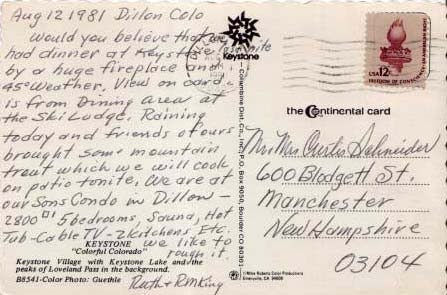 Aug 12 1981 Dillon Colo
Would you believe that we
had dinner at Keystone last nite
by a huge fireplace and
45° weather. View on card
is from Dining area at
the Ski Lodge. Raining
today and friends of ours
brought some mountain
trout which we will cook
on patio tonite. We are at
our Sons Condo in Dillon -
2800 5 bedrooms, Sauna, Hot
Tub - Cable TV - 2 kitchens Etc.
we like to
rough it.
KEYSTONE
"Colorful Colorado"
Keystone Village with Keystone Lake and the
peaks of Loveland Pass in the background.
B8541-Color Photo: Guethle
Ruth + Rm King
Keystone
Columbine Dist. Co., Inc., P.O. Box 9050, Boulder CO 80301
©Mike Roberts Color Productions
Emeryville, CA 94608
USA 12c
FREEDOM OF CONSCIENCE
the Continental card
Mr Mrs Curtis Schneider
600 Blodgett St.
Manchester
New Hampshire
03104